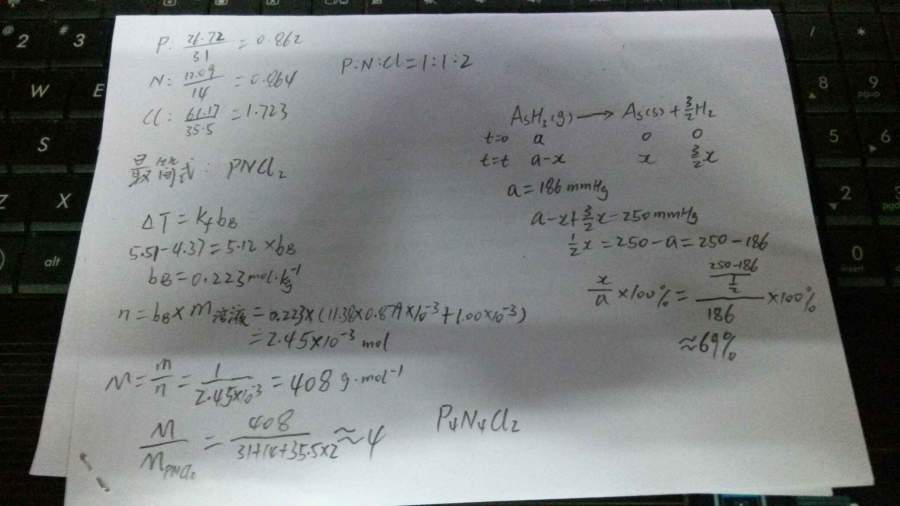 P: 26.72/31 = 0.862
N: 12.09/14 = 0.864
Cl: 61.17/35.5 = 1.723
P:N:Cl=1:1:2
最简式: PNCl₂
ΔT=Kf bB
5.51-4.37=5.12×bB
bB=0.223mol·kg⁻¹
n=bB×m溶液=0.223×(11.38×0.879×10⁻³+1.00×10⁻³)
=2.45×10⁻³ mol
M=m/n=1/2.45×10⁻³=408g·mol⁻¹
M/M PNCl₂=408/31+14+35.5×2≈4
P₄N₄Cl₂
AsH₃(g)→As(s)+3/2H₂
t=0 a 0 0
t=t a-x x 3/2x
a=186mmHg
a-x+3/2x=250mmHg
1/2x=250-a=250-186
x/a×100%=250-186/1/2/186×100%
≈69%
2
3
W
E
S
Z
X
alt
8
9
5
6
2
3
0
insert